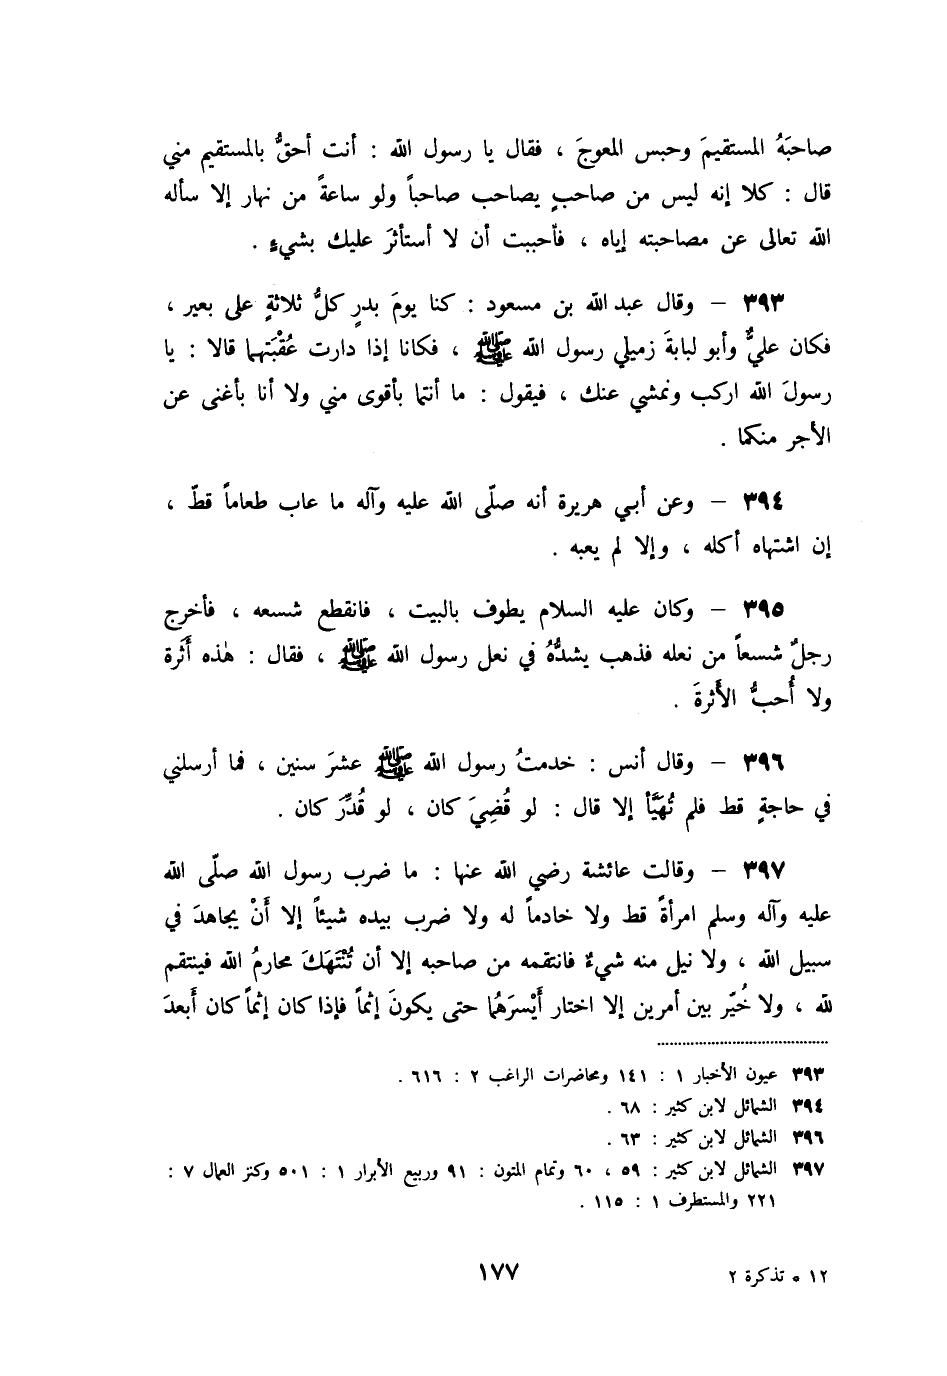 صاحبَهُ المستقيمَ وحبس المعوجَ ، فقال يا رسول الله : أنت أحقُّ بالمستقيم مني
قال : كلا إنه ليس من صاحبٍ يصاحب صاحباً ولو ساعةً من نهار إلا سأله
الله تعالى عن مصاحبته إياه ، فأحببت أن لا أستأثرَ عليك بشيءٍ .
٣٩٣ – وقال عبد الله بن مسعود : كنا يومَ بدرٍ كلُّ ثلاثةٍ على بعير ،
فكان عليٌّ وأبو لبابةَ زميلي رسول الله ﷺ ، فكانا إذا دارت عُقْبَتهما قالا : يا
رسولَ الله اركب ونمشي عنك ، فيقول : ما أنتما بأقوى مني ولا أنا بأغنى عن
الأجر منكما .
٣٩٤ – وعن أبي هريرة أنه صلّى الله عليه وآله ما عاب طعاماً قطّ ،
إن اشتهاه أكله ، وإلا لم يعبه .
٣٩٥ – وكان عليه السلام يطوف بالبيت ، فانقطع شسعه ، فأخرج
رجلٌ شسعاً من نعله فذهب يشدُّهُ في نعل رسول الله ﷺ ، فقال : هٰذه أَثَرة
ولا أُحبُّ الأَثرةَ .
٣٩٦ – وقال أنس : خدمتُ رسول الله ﷺ عشرَ سنين ، فما أرسلني
في حاجةٍ قط فلم تُهَيَّأ إلا قال : لو قُضِيَ كان ، لو قُدِّرَ كان .
٣٩٧ – وقالت عائشة رضي الله عنها : ما ضرب رسول الله صلّى الله
عليه وآله وسلم امرأةً قط ولا خادماً له ولا ضرب بيده شيئاً إلا أَنْ يجاهدَ في
سبيل الله ، ولا نيل منه شيءٌ فانتقمه من صاحبه إلا أن تُنْتَهَكَ محارمُ الله فينتقم
لله ، ولا خُيّر بين أمرين إلا اختار أَيْسرَهُما حتى يكونَ إثماً فإذا كان إثماً كان أَبعدَ
٣٩٣ عيون الأخبار ١ : ١٤١ ومحاضرات الراغب ٢ : ٦١٦ .
٣٩٤ الشمائل لابن كثير : ٦٨ .
٣٩٦ الشمائل لابن كثير : ٦٣ .
٣٩٧ الشمائل لابن كثير : ٥٩ ، ٦٠ وتمام المتون : ٩١ وربيع الأبرار ١ : ٥٠١ وكنز العمال ٧ :
٢٢١ والمستطرف ١ : ١١٥ .
١٢ * تذكرة ٢
١٧٧